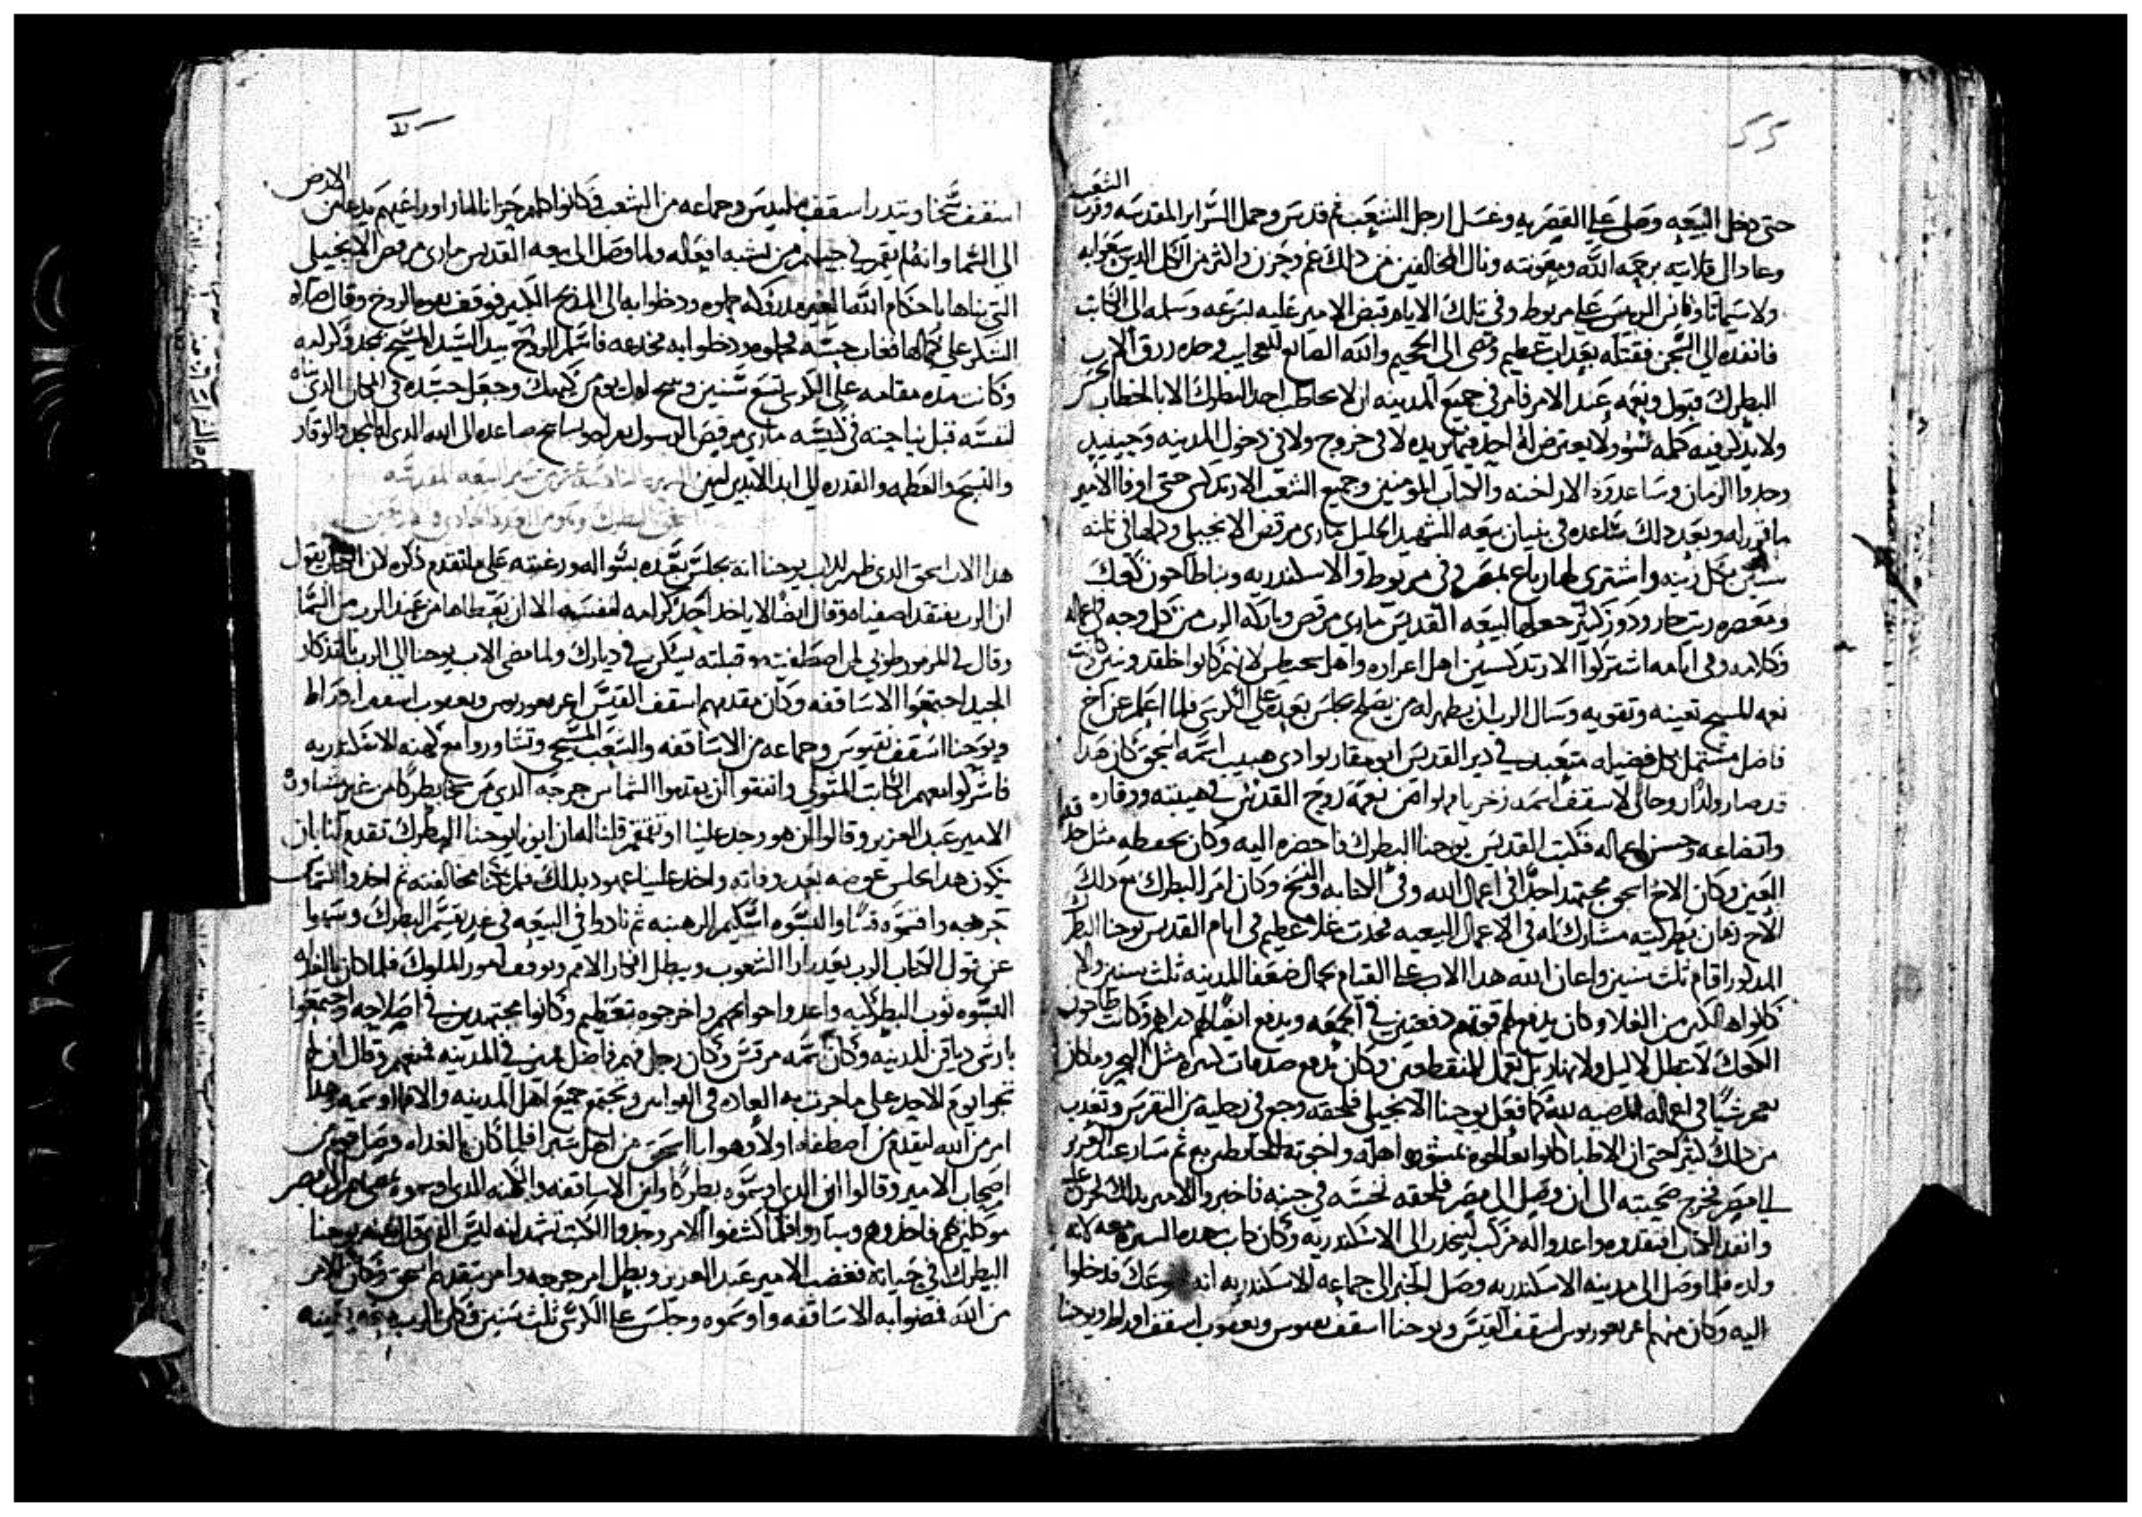 حتى دخل البيعه وصلى على القصريه وغسل ارجل الشعب ثم قدس وحمل السراير المقدسه وقرب الشعب
وعاد الى قلايته برحمة الله ومعونته ونال المخالفين من دالك غم وحزن واكثر من الكل الدين سعوا به
ولا سيما تاوفانس الريس على مريوط وفي تلك الايام قبض الامير عليه بسرعه وسلمه الى الكاتب
فانفده الى السجن فقتله بعداب عظيم ومضى الى الجحيم والله الصانع العجايب وحده رزق الاب
البطرك قبول ونعمه عند الامر فامر في جميع المدينه ان لا يخاطب احد البطرك الا بالخطاب الحسن
ولا يدكر فيه كلمه سو ولا يعترض له احد فيما يريده لا في خروج ولا في دخول المدينه وحينيد
وجدوا الزمان وساعدوه الاراخنه والكتاب المومنين وجميع الشعب الارتدكسي حتى اوفا الامير
ما قرر له وبعد دلك ساعده في بنيان بيعه الشهيد الجليل ماري مرقص الانجيلي وكملها في تلته
سنين بكل زينه واشترى لها رباع بمصر وفي مريوط والاسكندريه وبنا طاحون كعك
ومعصره زيت حار ودور كتير جعلها لبيعه القديس ماري مرقص وباركه الرب من كل وجه في اعماله
وكلامه وفي ايامه اشتركوا الارتدكسيين اهل اغراره واهل سخيطس لانهم كانوا خلقدونيين وكانت
نعمه المسيح تعينه وتقويه وسال الرب ان يظهر له من يصلح يجلس بعده على الكرسي فلما اعلم عن اخ
فاضل مشتمل بكل فضيله متعبد في دير القديس ابو مقار بوادي هبيب اسمه اسحق كان هدا
قد صار ولد روحاني لاسقف اسمه زخريا مملوا من نعمة روح القدس في هيبته ووقاره
واتضاعه وحسن اعماله فكتب القديس يوحنا البطرك فاحضره اليه وكان يحفظه متل حدقة
العين وكان الاخ اسحق مجتهد اجدا في اعمال الله وفي الكتابه والنسخ وكان امر البطرك مع دلك
الاخ زمان بطركيته مشارك له في الاعمال البيعيه فحدت غلا عظيم في ايام القديس يوحنا البطرك
المدكور اقام تلت سنين واعان الله هدا الاب على القيام بحال ضعفا المدينه تلت سنين ولا
كانوا هالكين من الغلا وكان يدفع لهم قوتهم دفعتين في الجمعه ويدفع ايضا لهم دراهم وكانت طاحون
الكعك لا تبطل لا ليل ولا نهار بل تعمل للمنقطعين وكان يدفع صدقات كتيره متل البحر وما كان
يعجز شيا في اعماله المرضيه لله كما فعل يوحنا الانجيلي فلحقه وجع في رجليه من النقرس وتعدب
من دلك كتيرا حتى ان الاطبا كانوا يعالجوه بمشوره اهله واخوته المحايطين به ثم سار عبد العزيز
الى مصر فخرج صحبته الى ان وصل الى مصر فلحقه نخسه في جنبه فاخبروا الامير بدلك فحزن عليه
وانفد الكتاب افتقدوه واعدوا له مركب لينحدر الى الاسكندريه وكان كاتب هده السيره معه لانه
ولده فلما وصل الى مدينه الاسكندريه وصل الخبر الى جماعه الاسكندريه انه متوعك فدخلوا
اليه وكان منهم اغريغوريوس اسقف القيس ويوحنا اسقف نقيوس ويعقوب اسقف ارواط ويوحنا
اسقف سخا وتيدر اسقف مليدس وجماعه من الشعب فكانوا كلهم حزانا لما راوا راعيهم يدعا من الارض
الى السما وانه لم يقم في جيلهم من يشبه افعاله ولما وصل الى بيعه القديس ماري مرقص الانجيلي
التي بناها باحكام الله الغير مدروكه حملوه ودخلوا به الى المدبح الكبير فوقف بقوه الروح وقال صلاه
الشكر على كمالها فغاب حسه فحملوه ودخلوا به مخدعه فاسلم الروح بيد السيد المسيح بمجد وكرامه
وكانت مده مقامه على الكرسي تسع سنين وتنيح اول يوم من كيهك وجعل جسده في المكان الدي بناه
لنفسه قبل نياحته في كنيسه ماري مرقص الرسول بقراه وتسابيح صاعده الى الله الدي له المجد والوقار
والتسبيح والعظمه والقدره الى ابد الابدين امين السيره السادسه عشر من سير البيعه المقدسه
اسحق البطرك وهو من العدد الحادي والاربعين
هدا الاب اسحق الدي ظهر للاب يوحنا انه يجلس بعده بسواله ورغبته على ما تقدم دكره لان الكتاب يقول
ان الرب يفتقد اصفياه وقال ايضا لا ياخد احد كرامه لنفسه الا ان يعطاها من عند الرب من السما
وقال في المزمور طوبى لمن اصطفيته وقبلته يسكن في ديارك ولما مضى الاب يوحنا الى الرب بالتدكار
المجيد اجتمعوا الاساقفه وكان مقدمهم اسقف القيس اغريغوريوس ويعقوب اسقف ارواط
ويوحنا اسقف نقيوس وجماعه من الاساقفه والشعب المسيحي وتشاوروا مع كهنه الاسكندريه
فاشركوا معهم الكاتب المتولي واتفقوا ان يقدموا الشماس جرجه الدي من سخا بطركا من غير مشاوره
الامير عبد العزيز وقالوا ان هو وجد علينا او تقمقم قلنا له ان ابونا يوحنا البطرك تقدم الينا بان
يكون هدا يجلس عوضه بعد وفاته واخد علينا عهود بدلك فما يمكننا مخالفته ثم اخدوا الشماس
جرجه واقسموه قسا والبسوه اسكيم الرهبنه ثم نادوا في البيعه في غد يقسم البطرك وسهوا
عن قول الكتاب الرب يغير ارا الشعوب ويبطل افكار الامم ويوقف امور الملوك فلما كان بالغداه
البسوه توب البطركيه واعدوا حوايجهم واخرجوه بتعظيم وكانوا مجتهدين في اصلاحه واجتمعوا
بارشي دياقن المدينه وكان اسمه مرقس وكان رجل فهم فاضل في المدينه فمنعهم وقال ان لم
تجو ايوم الاحد على ما جرت به العاده في القوانين وتجتمع جميع اهل المدينه والا فما اوسمه وهدا
امر من الله ليقدم من اصطفاه اولا وهو ابا اسحق من اهل شبرا فلما كان بالغداه وصل قوم من
اصحاب الامير وقالوا اين الدي اوسموه بطركا واين الاساقفه والكهنه الدي اوسموه نمضي بهم الى مصر
موكلين بهم فاخدوهم وساروا فلما كشفوا الامر وجدوا الكتب تشهد انه ليس الدي قال عنه يوحنا
البطرك في حياته فغضب الامير عبد العزيز وبطل امر جرجه وامر بتقدمه اسحق وكان الامر
من الله فمضوا به الاساقفه واوسموه وجلس على الكرسي تلت سنين وكان الرب معه يعينه